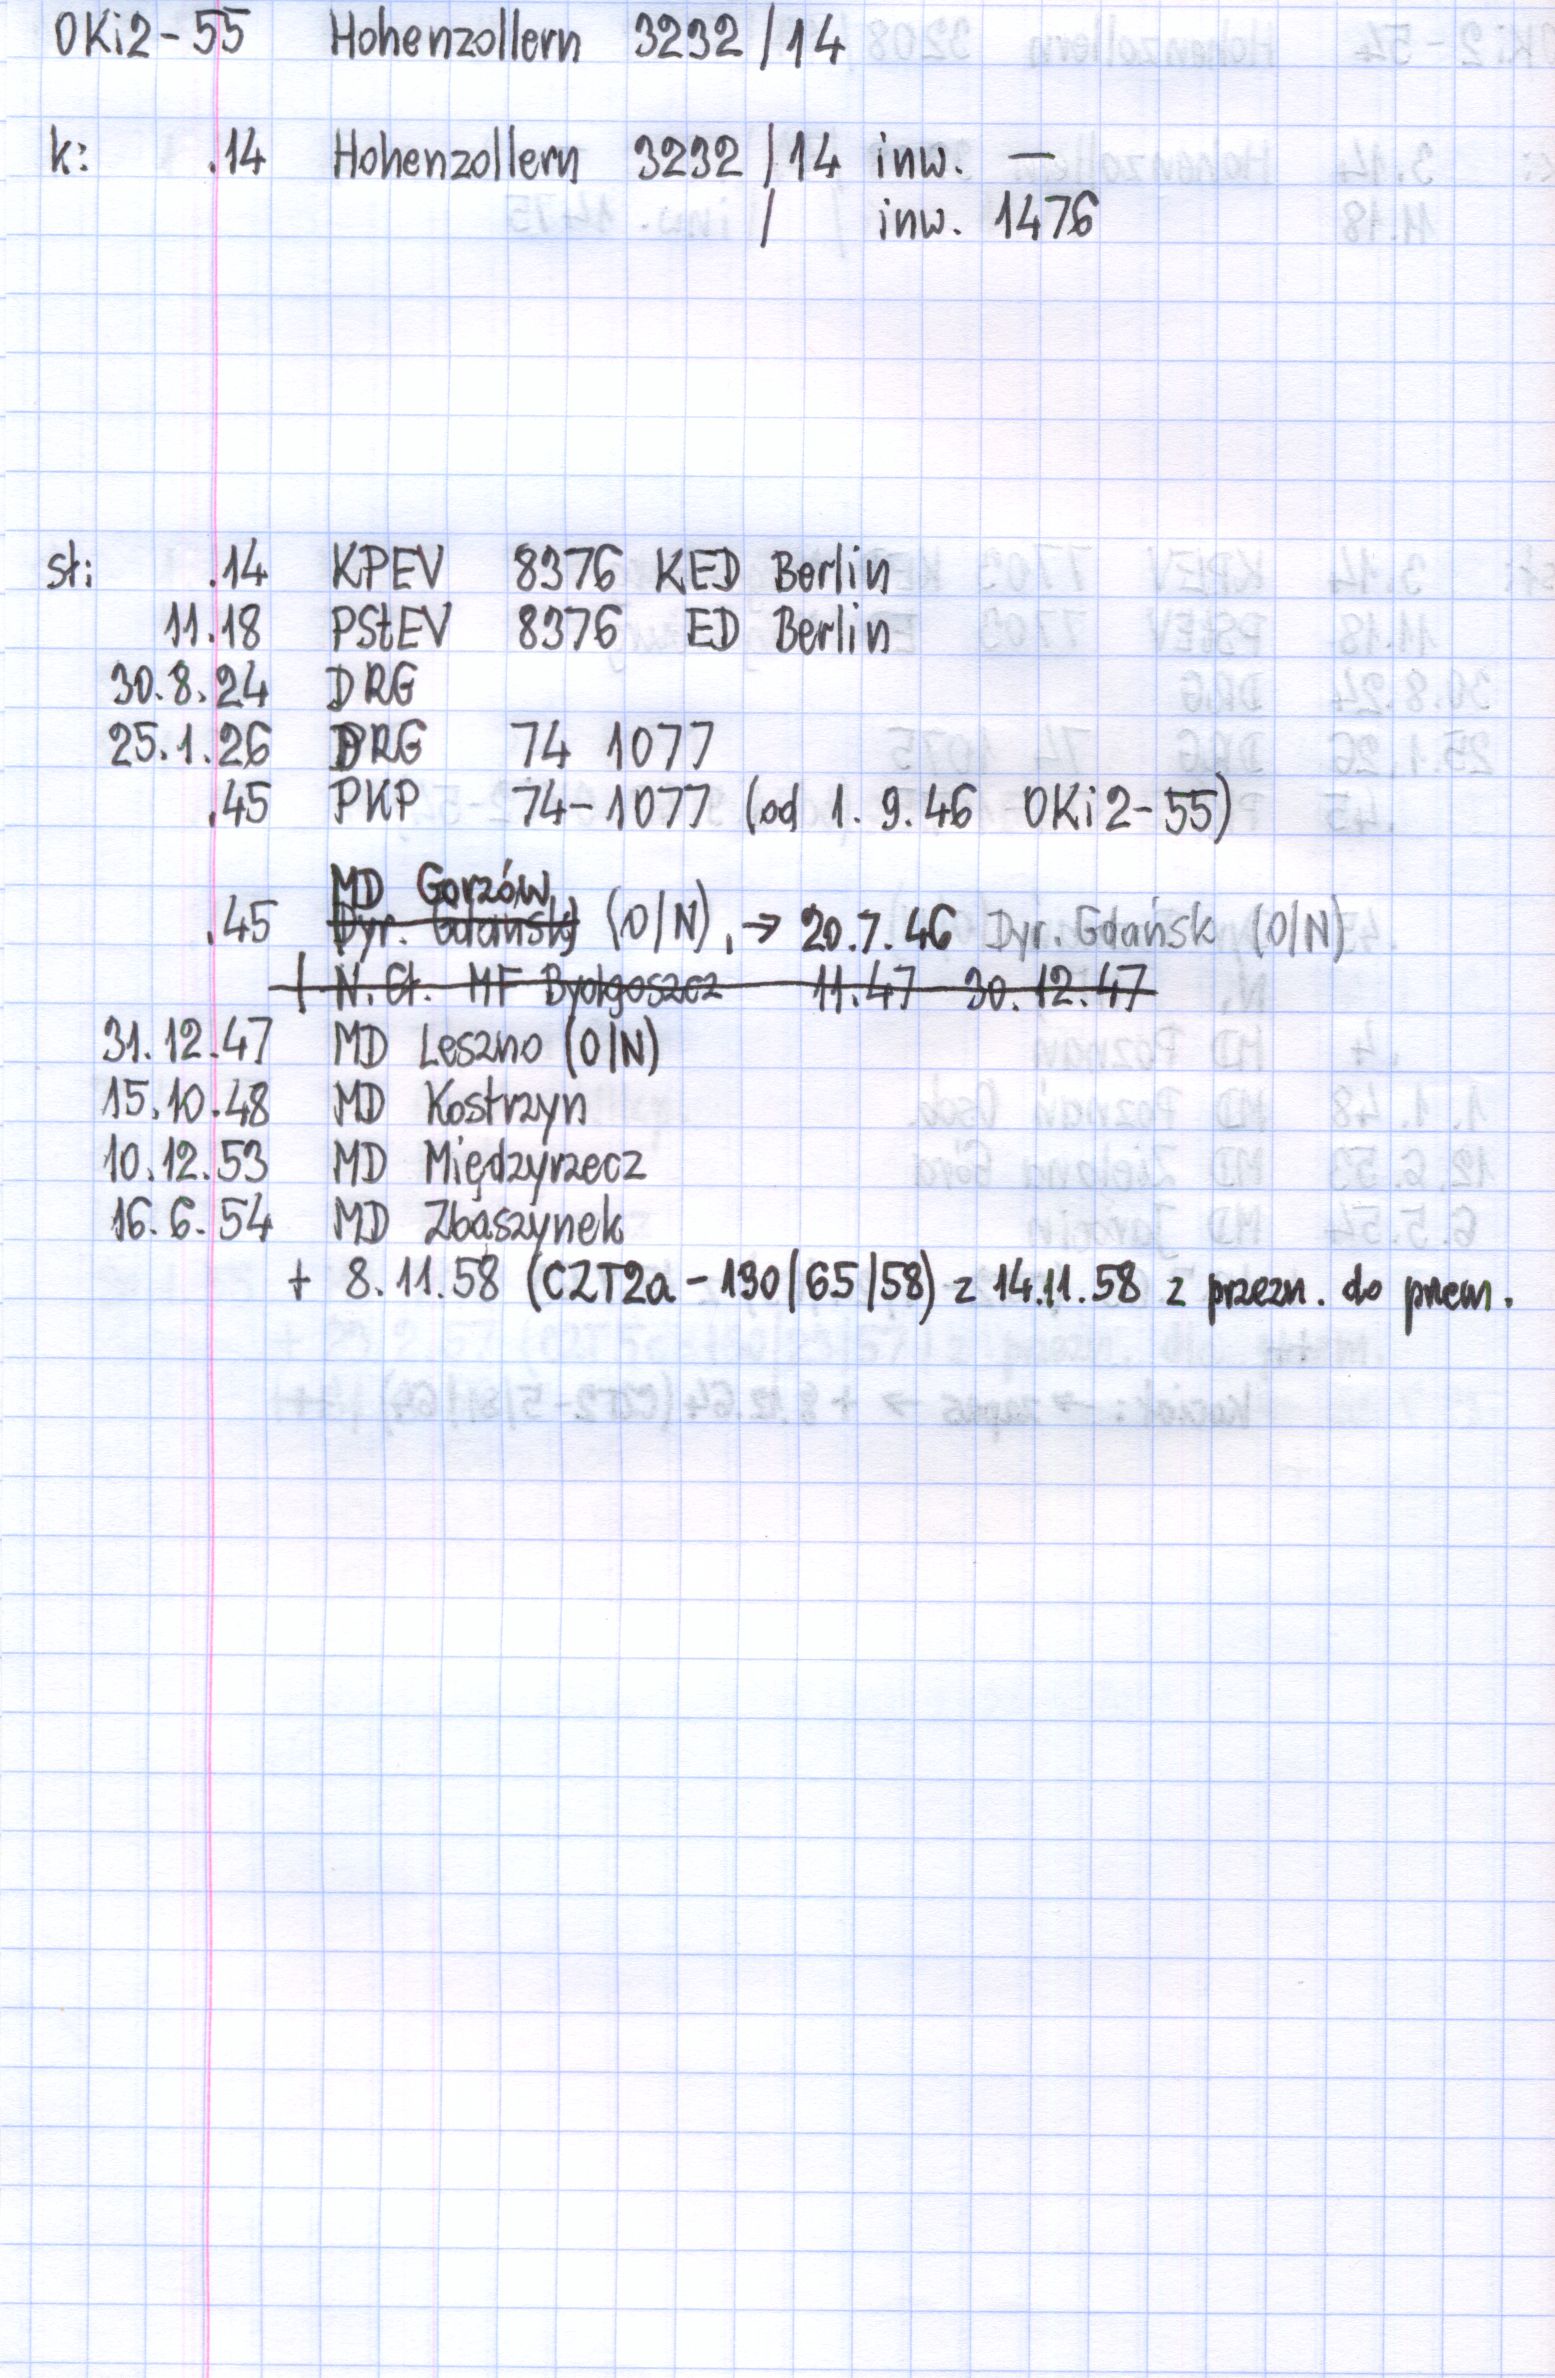 OKi2-55 Hohenzollern 3232/14
k: .14 Hohenzollern 3232/14 inw. —
/ inw. 1476
st: .14 KPEV 8376 KED Berlin
11.18 PStEV 8376 ED Berlin
30.8.24 DRG
25.1.26 DRG 74 1077
.45 PKP 74-1077 (od 1.9.46 OKi2-55)
MD Gorzów
.45 Dyr. Gdańsk (O/N), → 20.7.46 Dyr. Gdańsk (O/N)
N. Gł. MF Bydgoszcz 11.47 30.12.47
31.12.47 MD Leszno (O/N)
15.10.48 MD Kostrzyn
10.12.53 MD Międzyrzecz
16.6.54 MD Zbąszynek
+ 8.11.58 (CZT2a-190/65/58) z 14.11.58 z przezn. do przem.